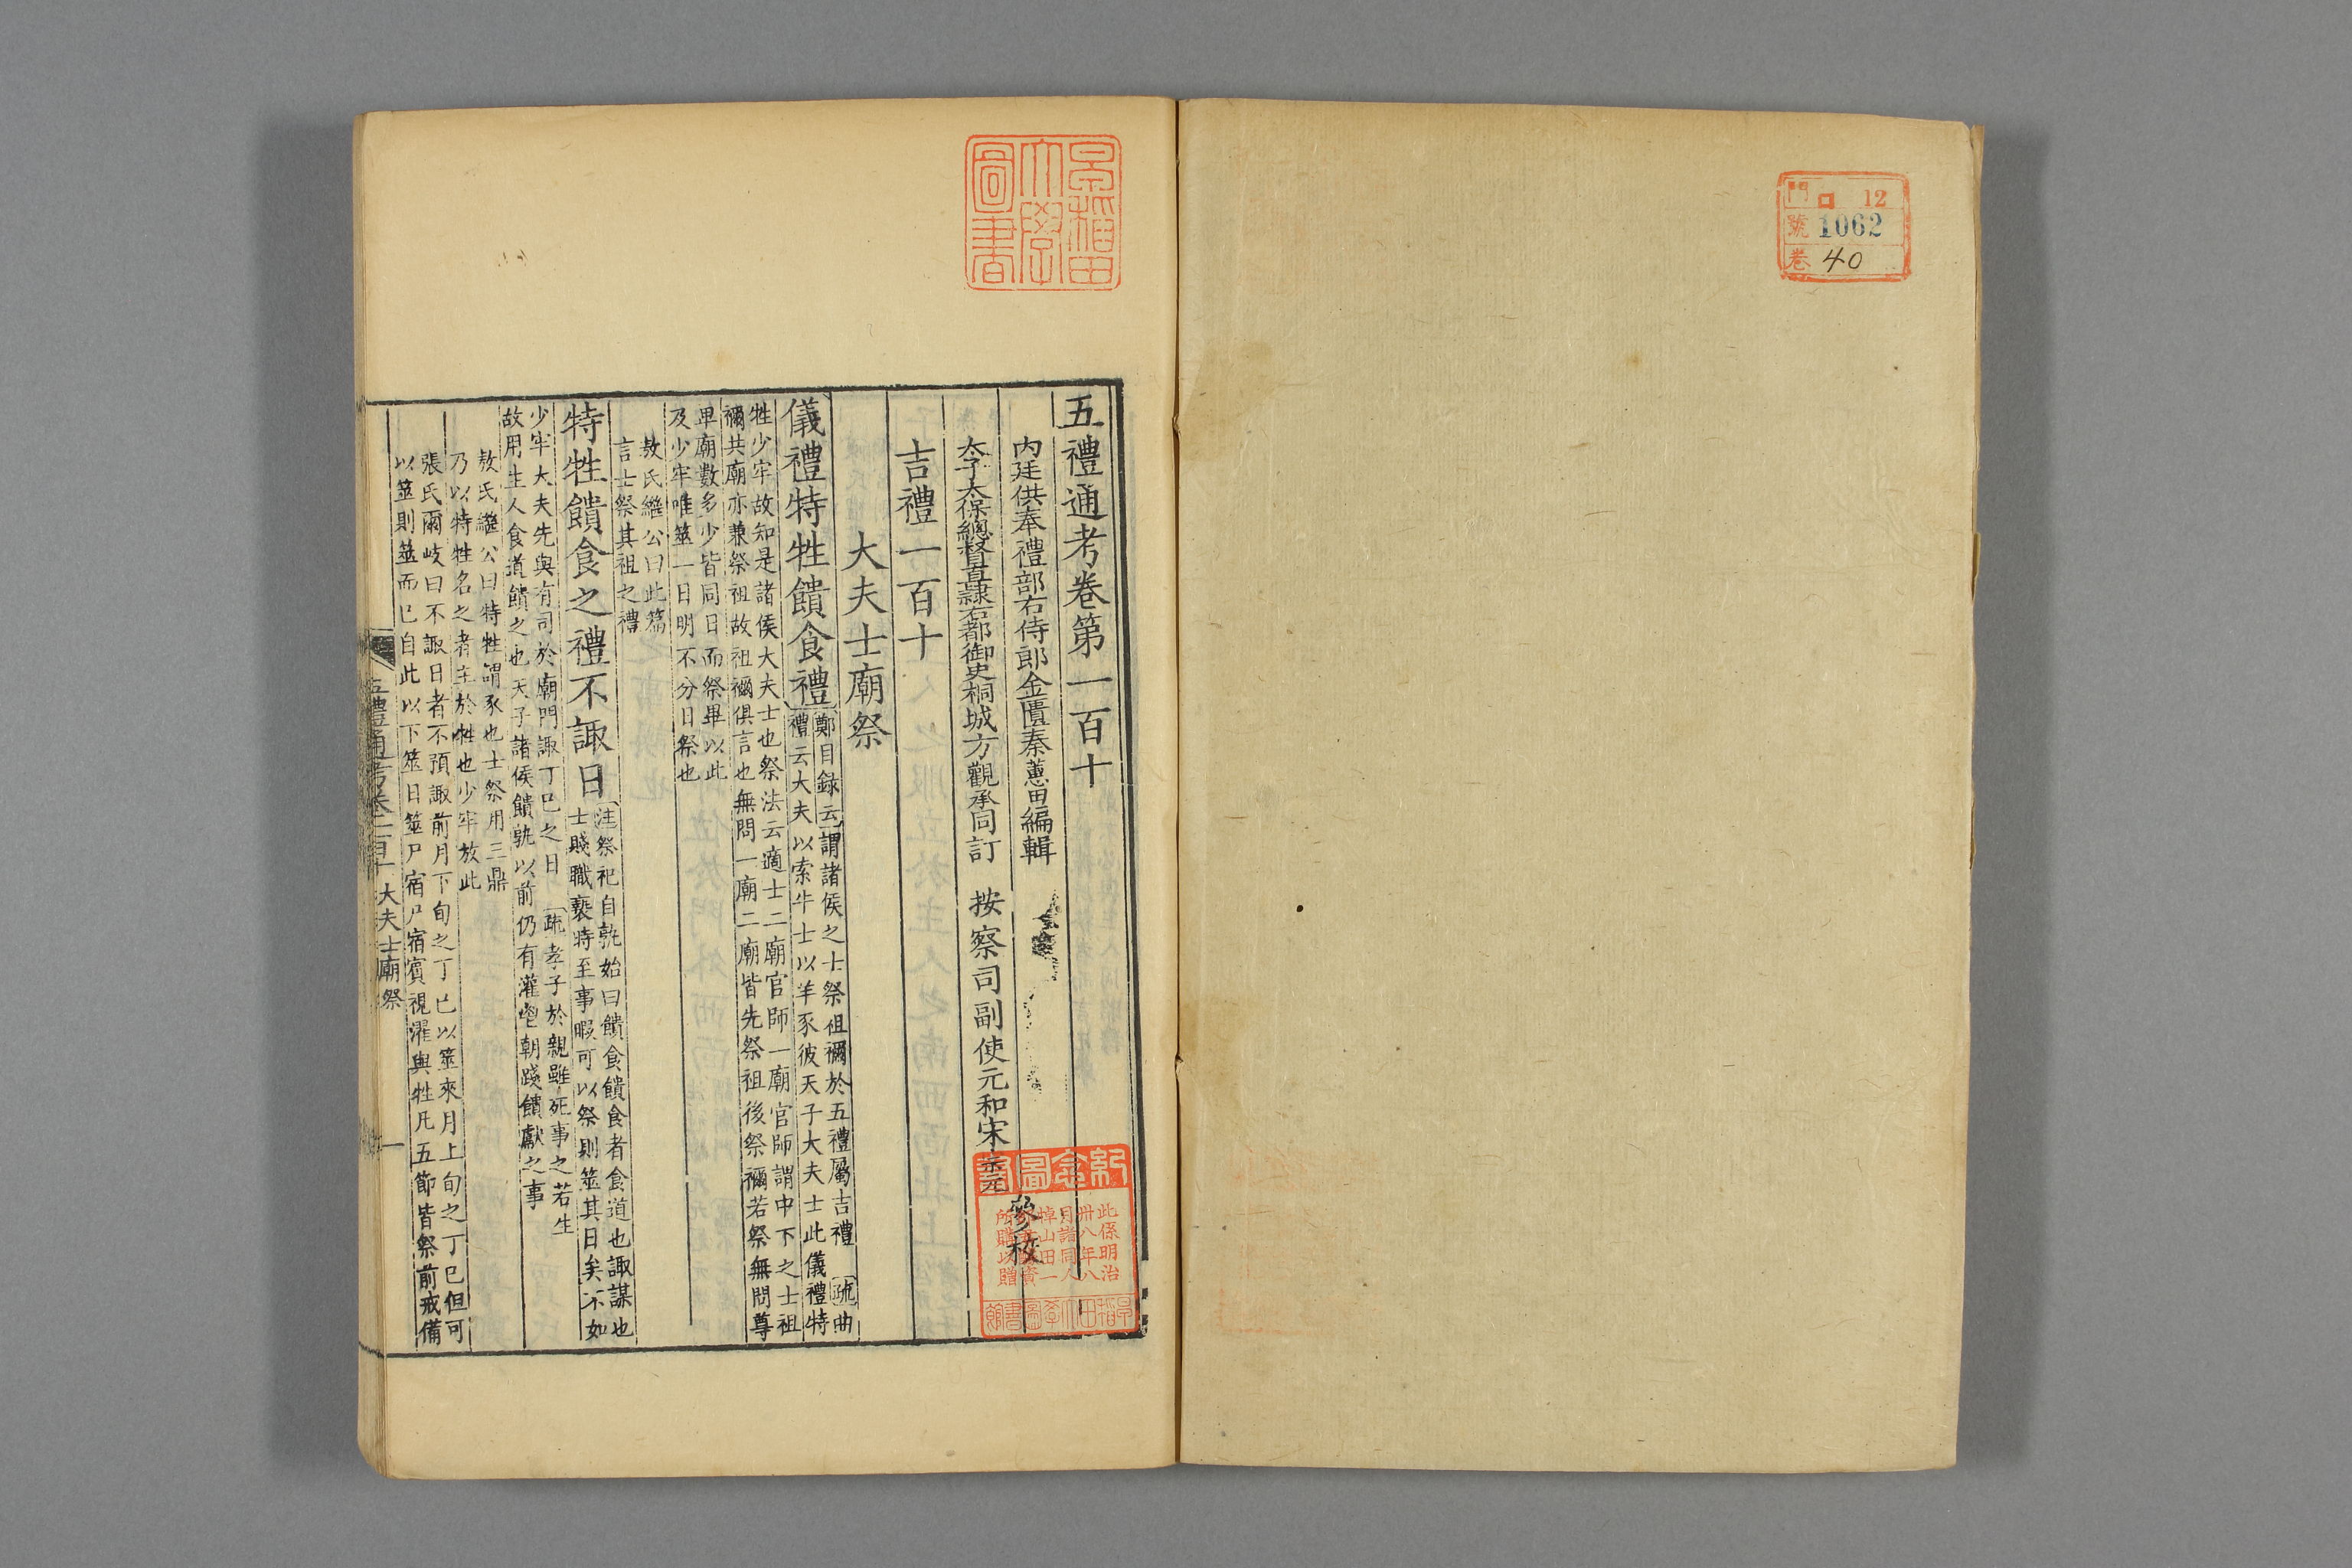 門 ロ 12
號 1062
卷 40
早稲田大學圖書
五禮通考卷第一百十
內廷供奉禮部右侍郎金匱秦蕙田編輯
太子太保總督直隷右都御史桐城方觀承同訂 按察司副使元和宋宗元參校
吉禮一百十
大夫士廟祭
儀禮特牲饋食禮
鄭目錄云謂諸侯之士祭祖禰於五禮屬吉禮 疏曲
禮云大夫以索牛士以羊豕彼天子大夫士此儀禮特
牲少牢故知是諸侯大夫士也祭法云適士二廟官師一廟官師謂中下之士祖
禰共廟亦兼祭祖故祖禰俱言也無問一廟二廟皆先祭祖後祭禰若祭無問尊
卑廟數多少皆同日而祭畢以此
及少牢唯筮一日明不分日祭也
敖氏繼公曰此篇
言士祭其祖之禮
特牲饋食之禮不諏日
注祭祀自孰始曰饋食饋食者食道也諏謀也
士賤職䙝時至事暇可以祭則筮其日矣不如
少牢大夫先與有司於廟門諏丁巳之日 疏孝子於親雖死事之若生
故用生人食道饋之也天子諸侯饋孰以前仍有灌鬯朝踐饋獻之事
敖氏繼公曰特牲謂豕也士祭用三鼎
乃以特牲名之者主於牲也少牢放此
張氏爾岐曰不諏日者不預諏前月下旬之丁巳以筮來月上旬之丁巳但可
以筮則筮而已自此以下筮日筮尸宿尸宿賓視濯與牲凡五節皆祭前戒備
五禮通考卷一百十 大夫士廟祭 一
紀念圖書
此係明治
卅八年八
月諸同人
悼山田一
所購以贈
早稲田大學圖書館